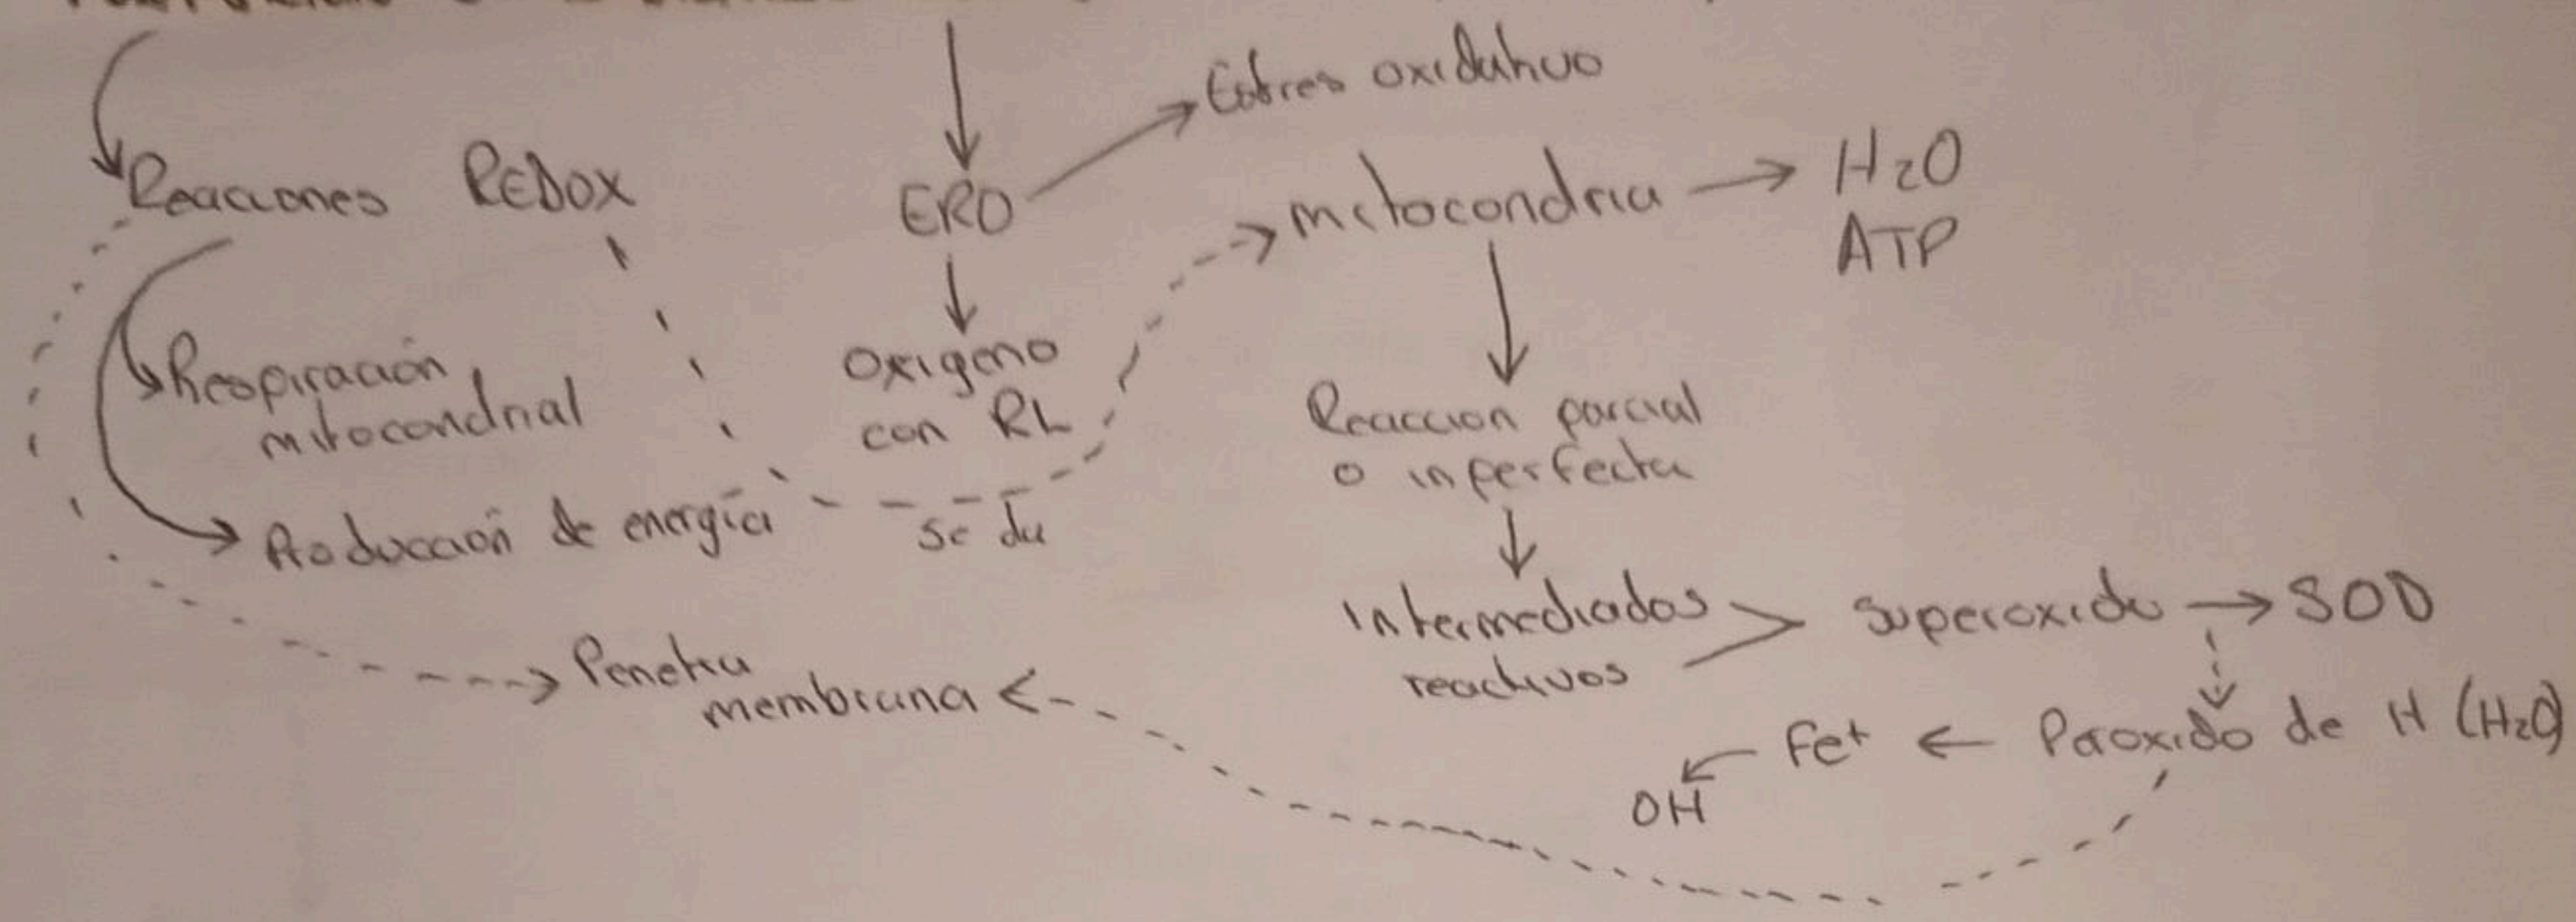 Estres oxidativo
Reacciones REDOX
ERO
mitocondria
H2O
ATP
Respiración
mitocondrial
Oxigeno
con RL
Reaccion parcial
o inperfecta
Producción de energía
se da
Intermediados
reactivos
superoxido
SOD
Penetra
membrana
Fe+
Peroxido de H (H2O)
OH